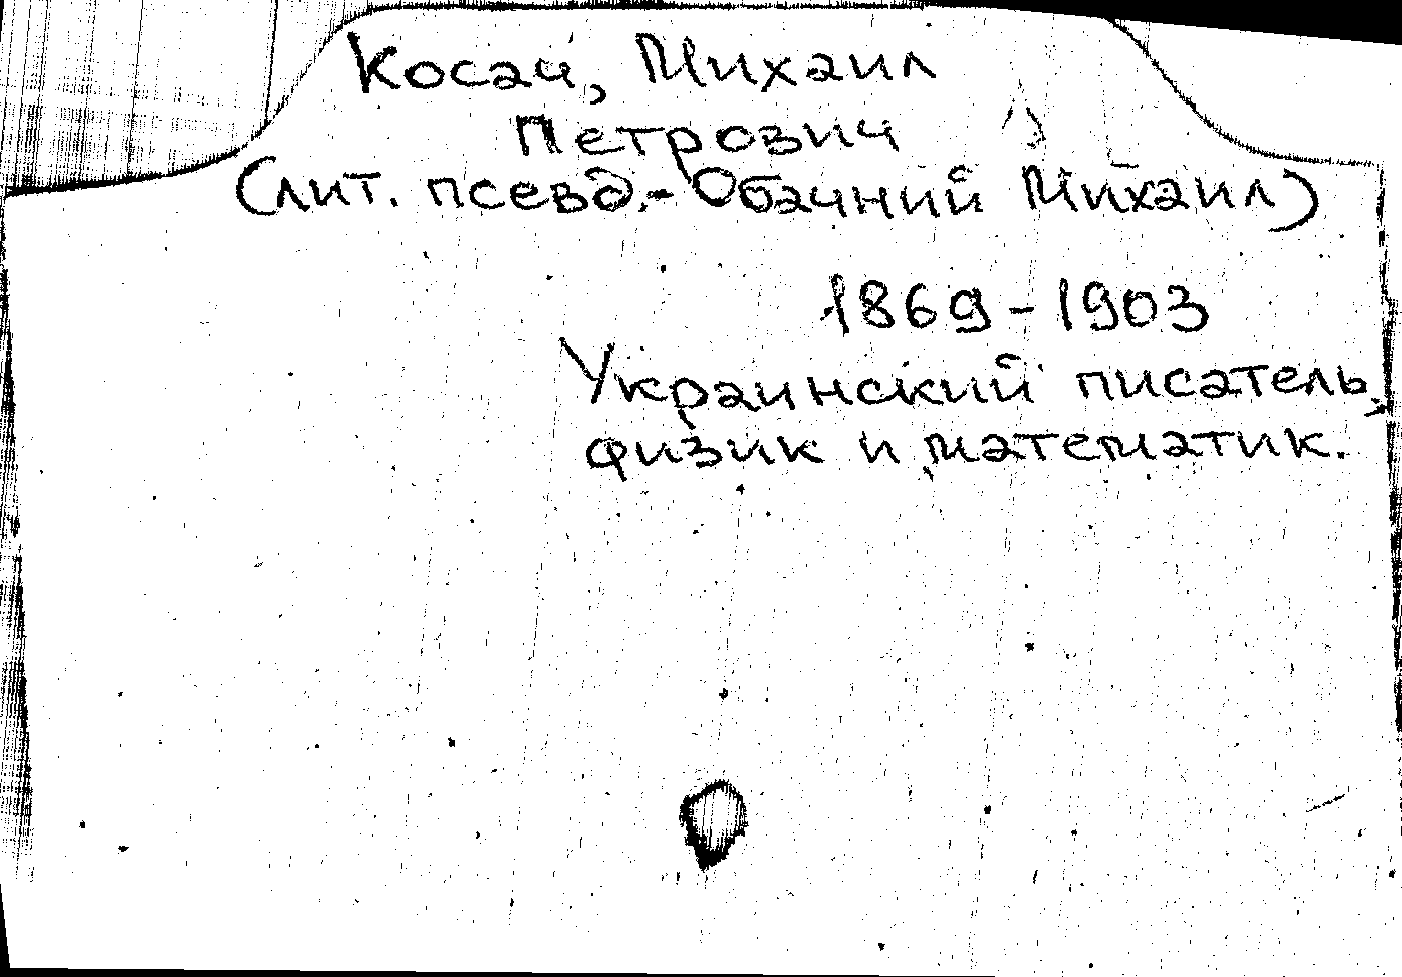 Косач, Михаил
Петрович
(лит. псевд.- Обачний Михаил)
1869-1903
Украинский писатель,
физик и математик.